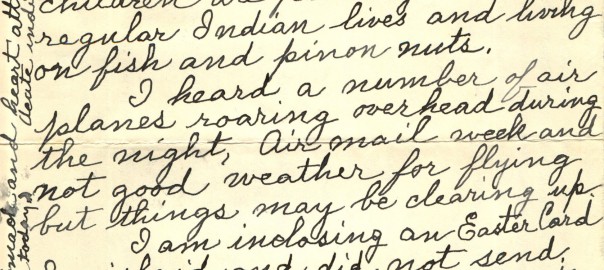 children are
regular Indian lives and living
on fish and pinon nuts.
I heard a number of air
planes roaring overhead during
the night, Air mail week and
not good weather for flying
but things may be clearing up.
I am inclosing an Easter Card
and did not send.
made and heart att
Acute indi
today)